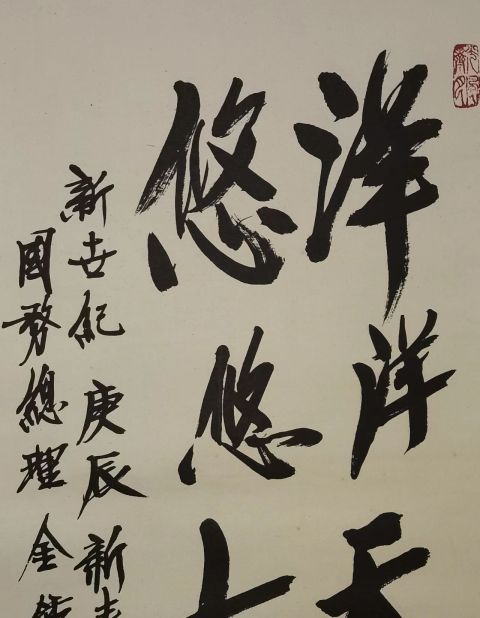 洋洋天
悠悠
新世紀 庚辰 新
國務總理 金